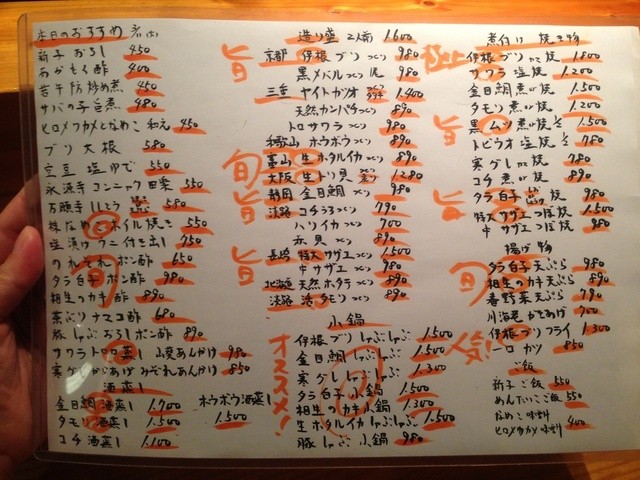 本日のおすすめ
新子 おろし 450
あかもく酢 400
若牛蒡 炒め煮 450
サバの子 旨煮 480
ヒロメワカメとなめこ 和え 450
ブリ 大根 580
空豆 塩ゆで 550
永源寺 コンニャク 田楽 550
万願寺 ししとう 580
株なめこ ホイル焼き 550
塩漬け ウニ 付き出し 750
のれそれ ポン酢 650
タラ白子 ポン酢 980
相生のカキ 酢 890
茶ぶり ナマコ酢 680
豚 しゃぶ おろし ポン酢 890
サワラ トロロ蒸し 山葵あんかけ 980
寒グレ からあげ みぞれあんかけ 850
酒蒸し
金目鯛 酒蒸し 1.700
タモリ 酒蒸し 1.500
コチ 酒蒸し 1.100
ホウボウ 酒蒸し 1.500
造り盛 2人前 1.600
旨 京都 伊根 ブリ つくり 980
黒メバル つくり 980
三重 ヤイトガツオ 1.400
天然カンパチ つくり 890
トロサワラ つくり 980
和歌山 ホウボウ つくり 890
旬 富山 生ホタルイカ つくり 890
大阪 生トリ貝 1280
旨 静岡 金目鯛 つくり 980
淡路 コチうす つくり 790
ハリイカ つくり 700
赤貝 つくり 890
旨 長崎 特大 サザエ つくり 1.500
中 サザエ つくり 980
北海道 天然ホタテ つくり 890
淡路 活 タモリ つくり 890
小鍋
オススメ!
伊根 ブリ しゃぶしゃぶ 1.500
金目鯛 しゃぶしゃぶ 1.500
寒グレ しゃぶしゃぶ 1.300
タラ白子 小鍋 1.500
相生のカキ 小鍋 1.300
生ホタルイカ しゃぶしゃぶ 1.500
豚 しゃぶ 小鍋 980
旬
煮付け 焼き物
極上 伊根 ブリカマ焼 1.800
サワラ 塩焼 1.200
金目鯛 煮か焼 1.500
タモリ 煮か焼 1.200
旨 黒ムツ 煮か焼 ½ 1.500
トビウオ 塩焼 ½ 780
寒グレ 焼 780
コチ 煮か焼 890
旨 タラ白子 焼 980
特大 サザエ つぼ焼 1.500
中 サザエ つぼ焼 980
揚げ物
旬 タラ白子 天ぷら 980
相生のカキ 天ぷら 890
春野菜 天ぷら 790
川海老 からあげ 700
人気! 伊根 ブリ フライ 1.300
一口 カツ 850
ご飯
新子ご飯 550
めんたいこご飯 550
なめこ 味噌汁
ヒロメワカメ 味噌汁 400